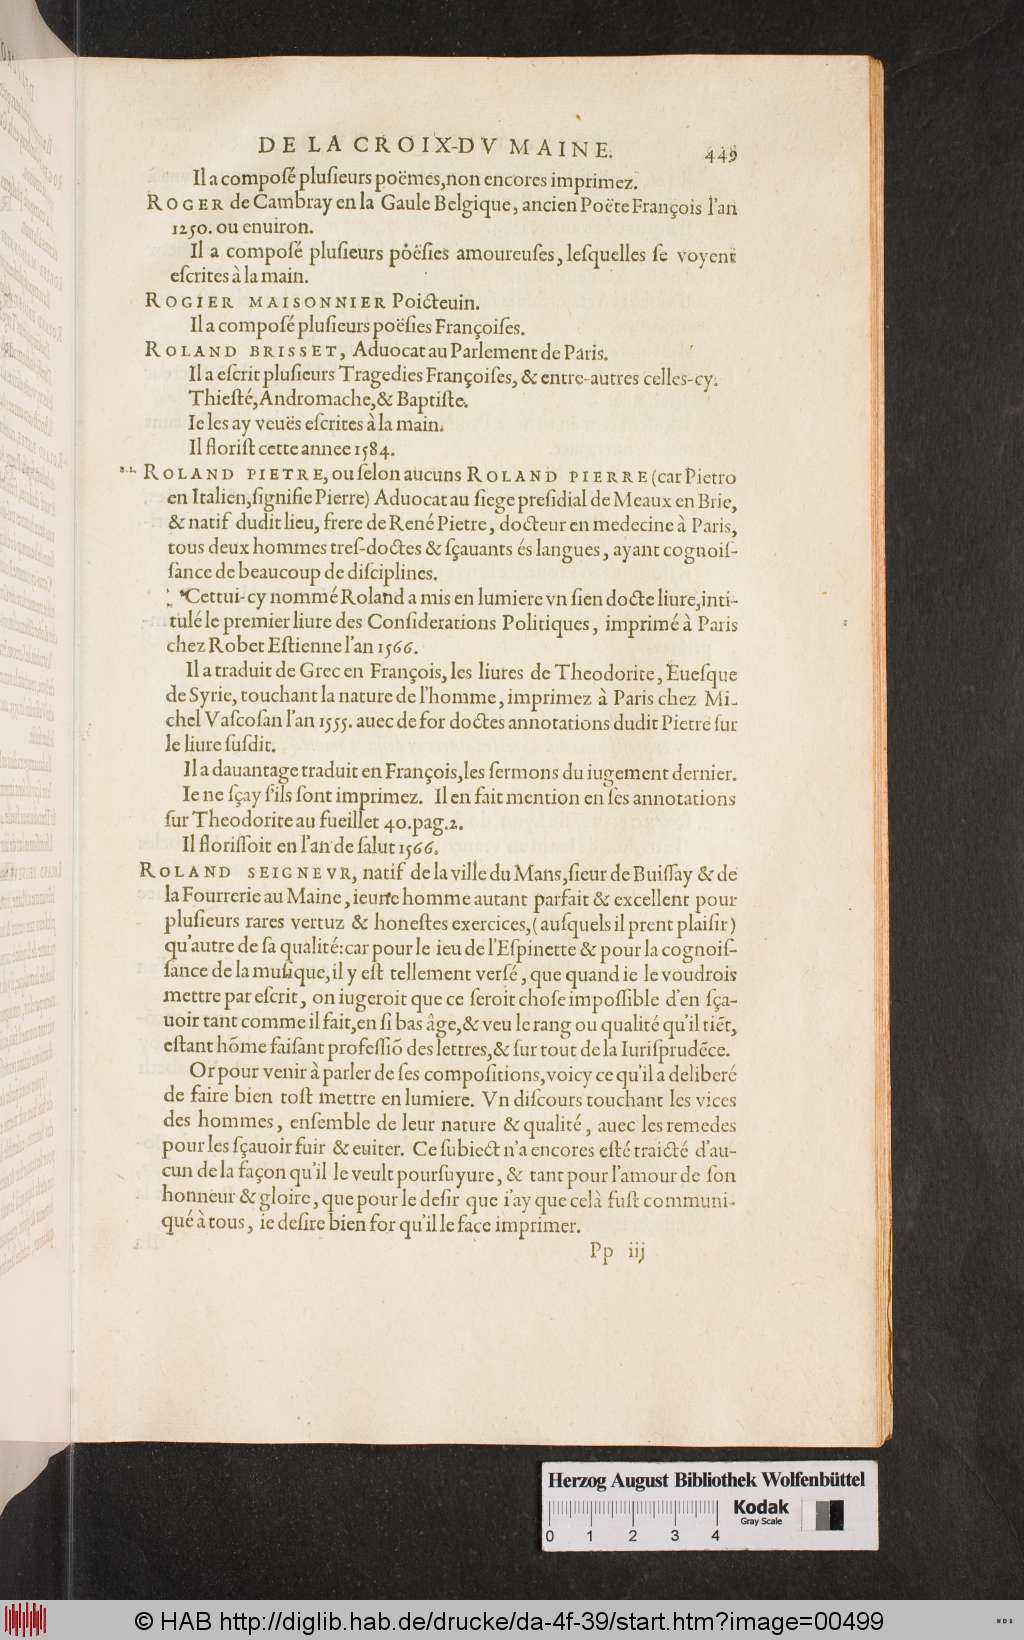 DE LA CROIX-DV MAINE. 449
Il a composé plusieurs poëmes, non encores imprimez.
ROGER de Cambray en la Gaule Belgique, ancien Poëte François l'an
1250. ou enuiron.
Il a composé plusieurs poësies amoureuses, lesquelles se voyent
escrites à la main.
ROGIER MAISONNIER Poicteuin.
Il a composé plusieurs poësies Françoises.
ROLAND BRISSET, Aduocat au Parlement de Paris.
Il a escrit plusieurs Tragedies Françoises, & entre-autres celles-cy.
Thiesté, Andromache, & Baptiste.
Ie les ay veuës escrites à la main.
Il florist cette annee 1584.
ROLAND PIETRE, ou selon aucuns ROLAND PIERRE (car Pietro
en Italien, signifie Pierre) Aduocat au siege presidial de Meaux en Brie,
& natif dudit lieu, frere de René Pietre, docteur en medecine à Paris,
tous deux hommes tres-doctes & sçauants és langues, ayant cognois-
sance de beaucoup de disciplines.
Cettui-cy nommé Roland a mis en lumiere vn sien docte liure, inti-
tulé le premier liure des Considerations Politiques, imprimé à Paris
chez Robet Estienne l'an 1566.
Il a traduit de Grec en François, les liures de Theodorite, Euesque
de Syrie, touchant la nature de l'homme, imprimez à Paris chez Mi-
chel Vascosan l'an 1555. auec de for doctes annotations dudit Pietre sur
le liure susdit.
Il a dauantage traduit en François, les sermons du iugement dernier.
Ie ne sçay s'ils sont imprimez. Il en fait mention en ses annotations
sur Theodorite au fueillet 40. pag. 2.
Il florissoit en l'an de salut 1566.
ROLAND SEIGNEVR, natif de la ville du Mans, sieur de Buissay & de
la Fourrerie au Maine, ieune homme autant parfait & excellent pour
plusieurs rares vertuz & honestes exercices, (ausquels il prent plaisir)
qu'autre de sa qualité: car pour le ieu de l'Espinette & pour la cognois-
sance de la musique, il y est tellement versé, que quand ie le voudrois
mettre par escrit, on iugeroit que ce seroit chose impossible d'en sça-
uoir tant comme il fait, en si bas âge, & veu le rang ou qualité qu'il tiẽt,
estant hõme faisant professiõ des lettres, & sur tout de la Iurisprudẽce.
Or pour venir à parler de ses compositions, voicy ce qu'il a deliberé
de faire bien tost mettre en lumiere. Vn discours touchant les vices
des hommes, ensemble de leur nature & qualité, auec les remedes
pour les sçauoir fuir & euiter. Ce subiect n'a encores esté traicté d'au-
cun de la façon qu'il le veult poursuyure, & tant pour l'amour de son
honneur & gloire, que pour le desir que i'ay que celà fust communi-
qué à tous, ie desire bien for qu'il le face imprimer.
Pp iij
Herzog August Bibliothek Wolfenbüttel
0 1 2 3 4
Kodak
Gray Scale
© HAB http://diglib.hab.de/drucke/da-4f-39/start.htm?image=00499